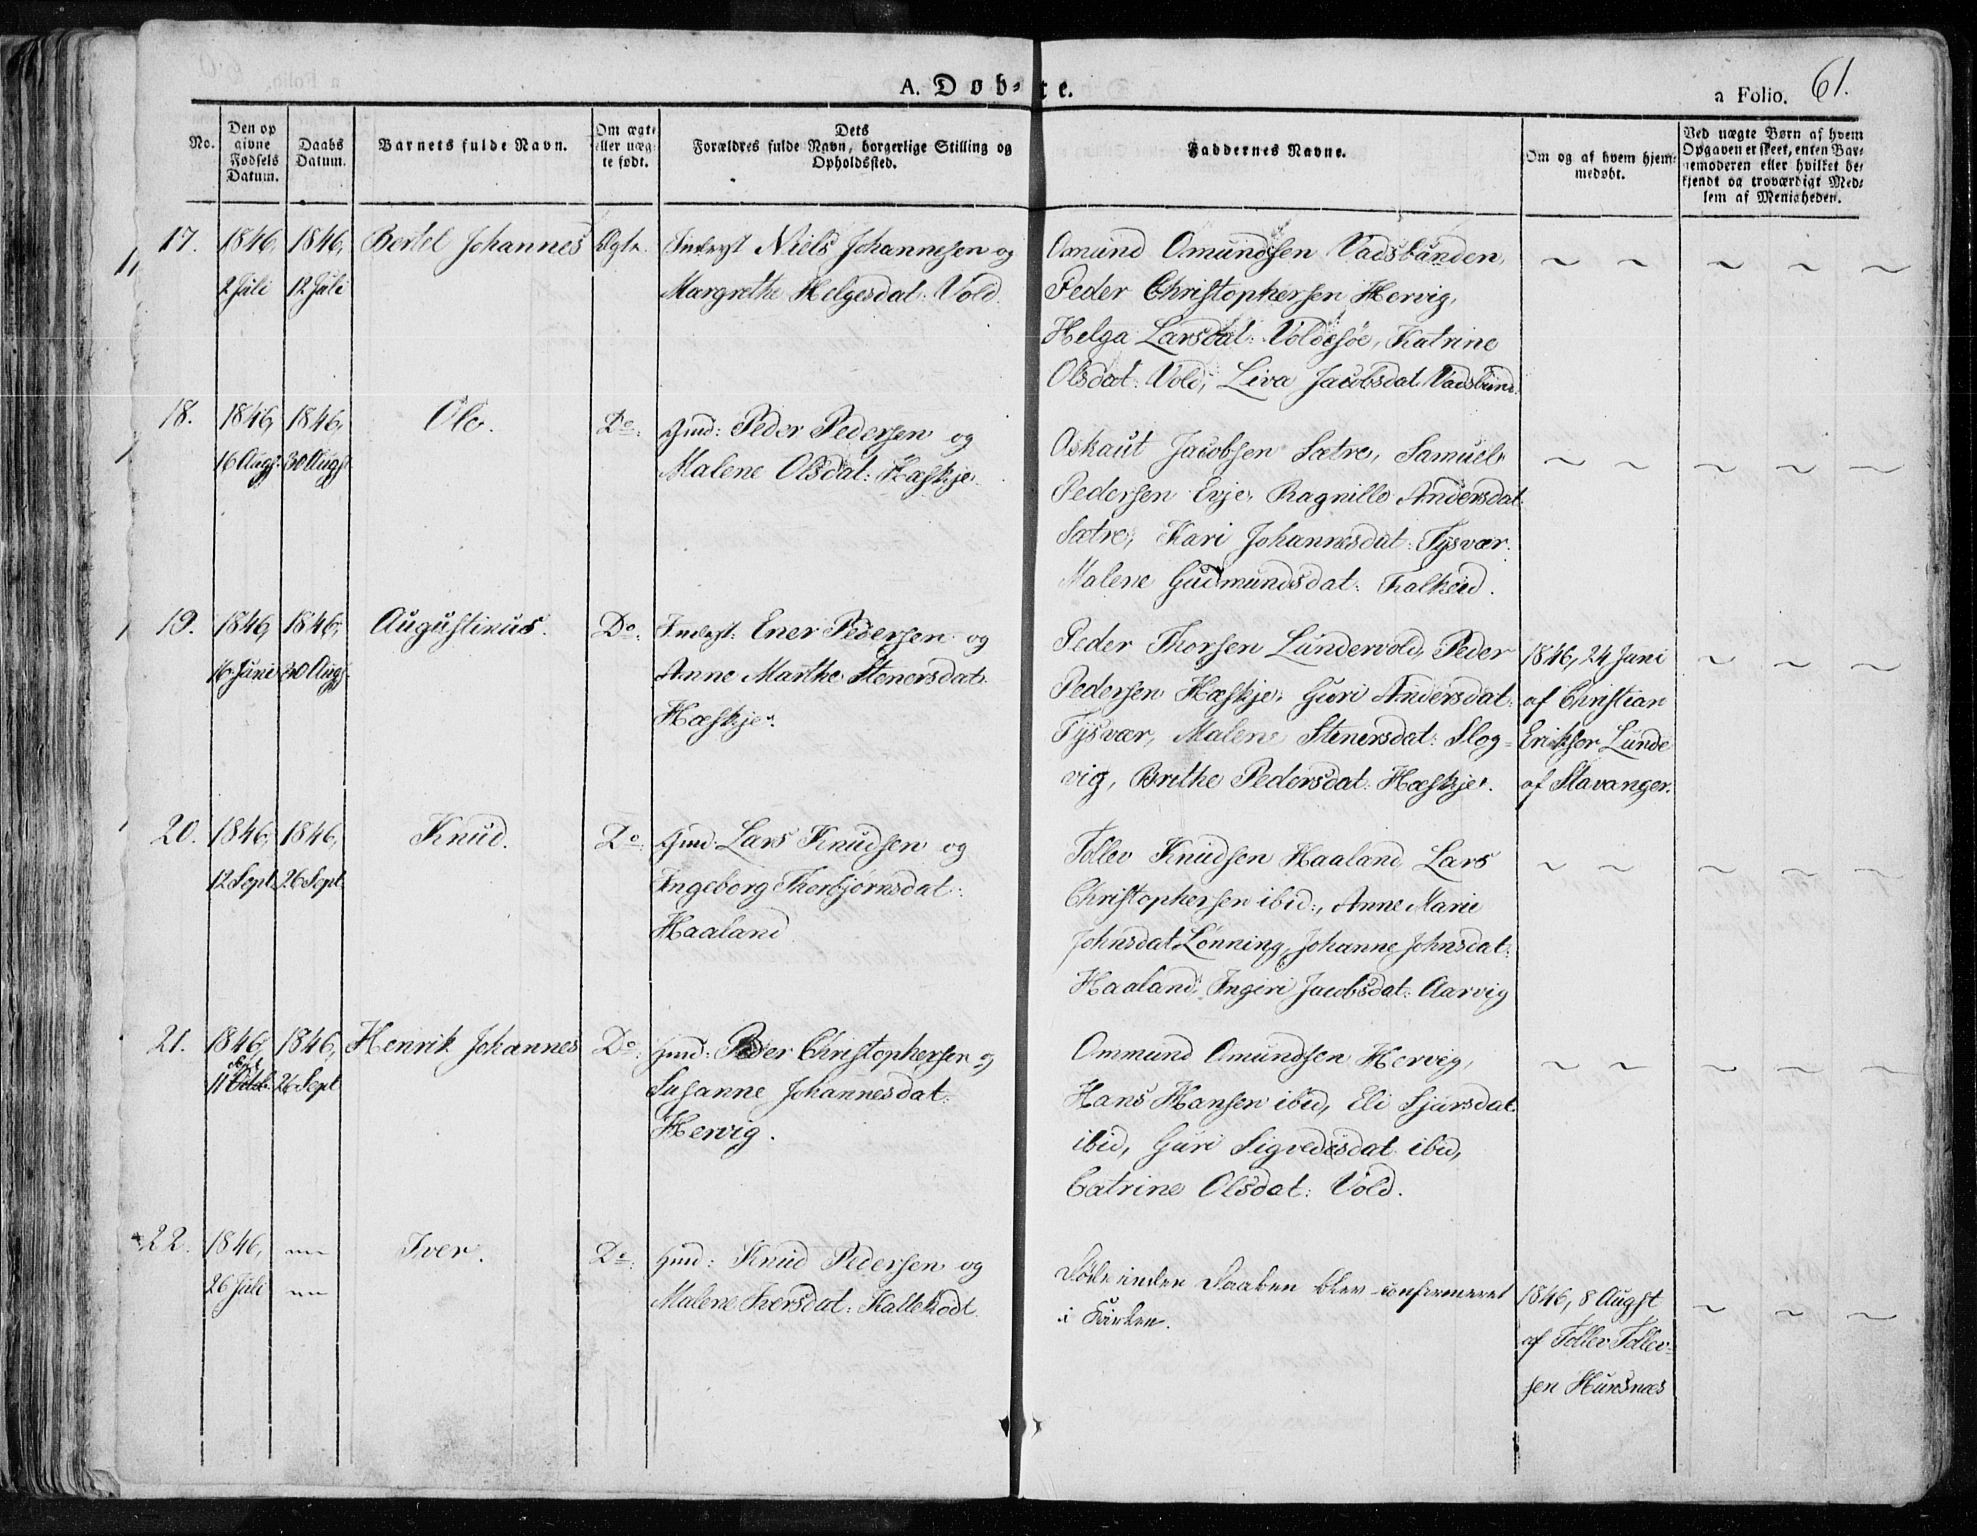 A. Døbte.
a Folio. 61.
No.
Den opgivne Fødsels Datum.
Daabs Datum.
Barnets fulde Navn.
Om ægte eller uægte født.
Dets Forældres fulde Navn, borgerlige Stilling og Opholdssted.
Faddernes Navne.
Om og af hvem hjemmedøbt.
Ved uægte Børn af hvem Opgaven er skeet, enten Barnemoderen eller hvilket bekjendt og troværdigt Medlem af Menigheden.
17. 1846, 1846, Bertel Johannes Ægte. Inderst Niels Johannesen og
2 Juli 12 Juli Margrethe Helgesdat: Vold.
Omund Omundsen Vadsbunden,
Peder Christophersen Hervig,
Helga Larsdat: Voldesøe, Katrine
Olsdat: Vold, Liva Jacobsdat Vadsbund.
18. 1846, 1846, Ole. Do. Gmd: Peder Pedersen og
16 Augs. 30 Augst Malene Olsdat: Hæskje.
Oskaut Jacobsen Sætre, Samuel
Pedersen Erje, Ragnille Andersdat
Sætre, Kari Johannesdat: Tysvær.
Malene Gudmundsdat: Falkeid.
19. 1846, 1846, Augustinus. Do. Inderst: Ener Pedersen og
16 Juni 30 Augs. Anne Marthe Stenersdat:
Hæskje.
Peder Thorsen Lundervold, Peder
Pedersen Hæskje, Guri Andersdat:
Tysvær, Malene Stenersdat: Slog=
vig, Brithe Pedersdat: Hæskje.
1846, 24 Juni
af Christian
Eriksen Lunde
af Stavanger.
20. 1846, 1846, Knud. Do. Gmd: Lars Knudsen og
12 Sept. 26 Sept. Ingeborg Thorbjørnsdat:
Haaland
Tollev Knudsen Haaland, Lars
Christophersen ibid:, Anne Marie
Johnsdat Lønning, Johanne Johnsdat:
Haaland, Ingeri Jacobsdat: Aarvig
21. 1846, 1846, Henrik Johannes Do. Gmd: Peder Christophersen og
Sept.
11 Octob. 26 Sept Susanne Johannesdat:
Hervig.
Ommund Omundsen Hervig,
Hans Hansen ibid, Eli Sjursdat
ibid, Guri Sigvedsdat ibid,
Catrine Olsdat: Vold.
22. 1846, Iver. Do. Gmd: Knud Pedersen og
26 Juli Malene Iversdat: Kallekodt
Døde inden Daaben blev confirmeret
i Kirken.
1846, 8 Augst
af Tollev Tollev=
sen Hursnæs